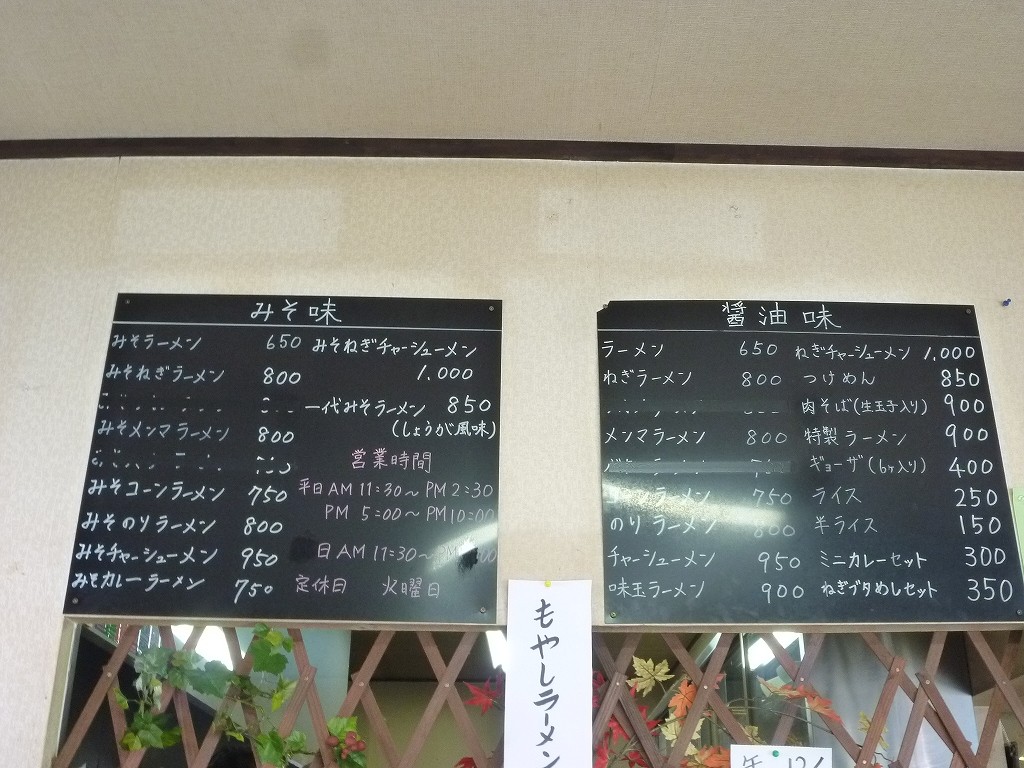 みそ味
みそラーメン 650
みそねぎラーメン 800
みそメンマラーメン 800
みそコーンラーメン 750
みそのりラーメン 800
みそチャーシューメン 950
みそカレーラーメン 750
みそねぎチャーシューメン
1,000
一代みそラーメン 850
(しょうが風味)
営業時間
平日 AM 11:30〜PM 2:30
PM 5:00〜PM 10:00
日 AM 11:30〜PM
定休日 火曜日
醤油味
ラーメン 650
ねぎラーメン 800
メンマラーメン 800
ラーメン 750
のりラーメン 800
チャーシューメン 950
味玉ラーメン 900
ねぎチャーシューメン 1,000
つけめん 850
肉そば(生玉子入り) 900
特製ラーメン 900
ギョーザ(6ヶ入り) 400
ライス 250
半ライス 150
ミニカレーセット 300
ねぎブタめしセット 350
もやしラーメン